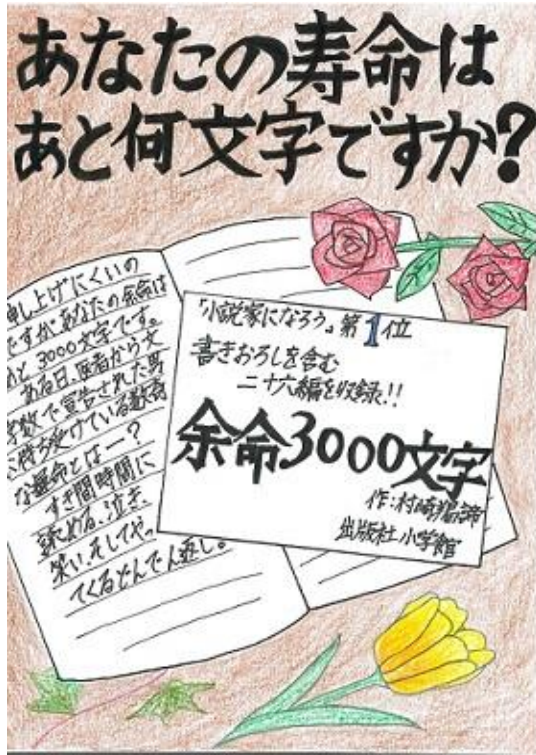 あなたの寿命は
あと何文字ですか?
申し上げにくいの
ですがあなたの余命は
あと3000文字です。
ある日、医者から文
字数で宣告された男
に待ち受けている数奇
な運命とはー?
すき間時間に
読める、泣き、
笑い、そしてやっ
てくるどんでん返し。
「小説家になろう」第1位
書きおろしを含む
二十六編を収録!!
余命3000文字
作:村崎羯諦
出版社 小学館